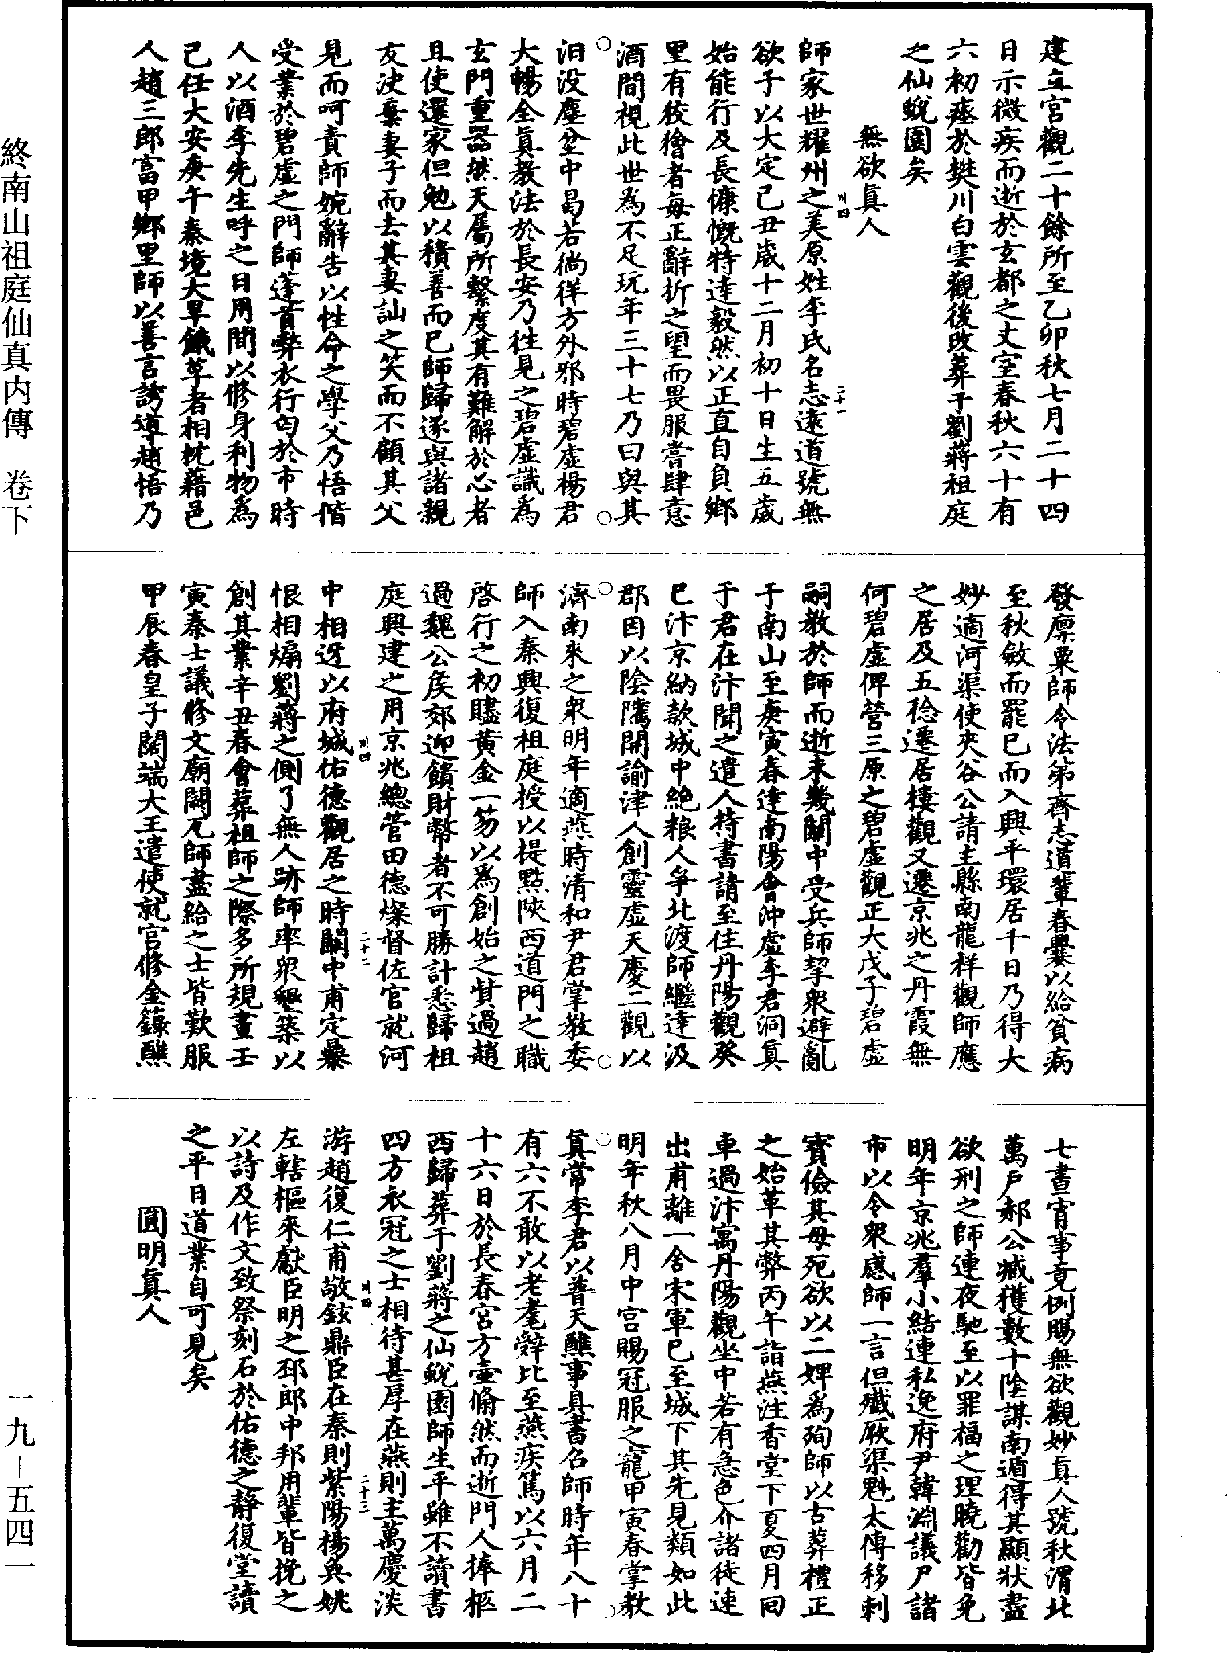 建立宮觀二十餘所至乙卯秋七月二十四
日示微疾而逝於玄都之丈室春秋六十有
六初瘞於樊川白雲觀後改葬于劉蔣祖庭
之仙蛻園矣
無欲真人
師家世耀州之美原姓李氏名志遠道號無
欲子以大定己丑歲十二月初十日生五歲
始能行及長慷慨特達毅然以正直自負鄉
里有狡獪者每正辭折之望而畏服嘗肆意
酒間視此世為不足玩年三十七乃曰與其
汨没塵坌中曷若徜徉方外邪時碧虛楊君
大暢全真教法於長安乃往見之碧虛識為
玄門重器然天屬所繫度其有難解於心者
且使還家但勉以積善而已師歸遂與諸親
友決棄妻子而去其妻訕之笑而不顧其父
見而呵責師婉辭告以性命之學父乃悟偕
受業於碧虛之門師蓬首弊衣行匄於市時
人以酒李先生呼之日用間以修身利物為
己任大安庚午秦境大旱餓莩者相枕藉邑
人趙三郎富甲鄉里師以善言誘導趙悟乃
發廪粟師令法弟齊志道輩舂爨以給貧病
至秋斂而罷已而入興平環居千日乃得大
妙適河渠使夾谷公請主縣南龍祥觀師應
之居及五稔遷居樓觀又遷京兆之丹霞無
何碧虛俾營三原之碧虛觀正大戊子碧虛
嗣教於師而逝未幾關中受兵師挈衆避亂
于南山至庚寅春達南陽會沖虛李君洞真
于君在汴聞之遣人持書請至住丹陽觀癸
巳汴京納款城中絕粮人爭北渡師繼達汲
郡因以陰隲開諭津人創靈虛天慶二觀以
濟南來之衆明年適燕時清和尹君掌教委
師入秦興復祖庭授以提點陝西道門之職
啓行之初贐黃金一笏以為創始之貲過趙
過魏公侯郊迎饋財幣者不可勝計悉歸祖
庭興建之用京兆總管田德燦督佐官就河
中相迓以府城佑德觀居之時關中甫定暴
恨相煽劉蔣之側了無人跡師率衆墾築以
創其業辛丑春會葬祖師之際多所規畫壬
寅秦士議修文廟闕瓦師盡給之士皆歎服
甲辰春皇子闊端大王遣使就宮修金籙醮
七晝宵事竟例賜無欲觀妙真人號秋渭北
萬戶郝公臧獲數十陰謀南遁得其顯狀盡
欲刑之師連夜馳至以罪福之理曉勸皆免
明年京兆羣小結連私逸府尹韓淵議尸諸
市以令衆感師一言但殲厥渠魁太傅移剌
寳儉其母死欲以二婢為殉師以古葬禮正
之始革其弊丙午詣燕注香堂下夏四月回
車過汴寓丹陽觀坐中若有急色介諸徒連
出甫離一舍宋軍已至城下其先見類如此
明年秋八月中宮賜冠服之寵甲寅春掌教
真常李君以普天醮事具書召師時年八十
有六不敢以老耄辭比至燕疾篤以六月二
十六日於長春宮方壼翛然而逝門人捧柩
西歸葬于劉蔣之仙蛻園師生平雖不讀書
四方衣冠之士相待甚厚在燕則主萬慶淡
游趙復仁甫敬鉉鼎臣在秦則紫陽楊奐姚
左轄樞來獻臣明之邳郎中邦用輩皆挽之
以詩及作文致祭刻石於佑德之靜復堂讀
之平日道業自可見矣
圓明真人
終南山祖庭仙真内傳 卷下
一九－五四一